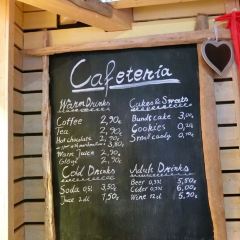 Cafetería
Warm Drinks
Coffee 2,90
Tea 2,90
Hot chocolate 2,90
3,80
Warm juice 2,90
Glögi 2,90
Cold Drinks
Soda 0,5l 3,50
Juice 2dl 7,50
Cakes & Sweets
Bundt cake 3,00
Cookies 0,20
Small candy 0,10
Adult Drinks
Beer 0,33l 5,50
Cider 0,33l 6,00
Wine 12cl 5,90